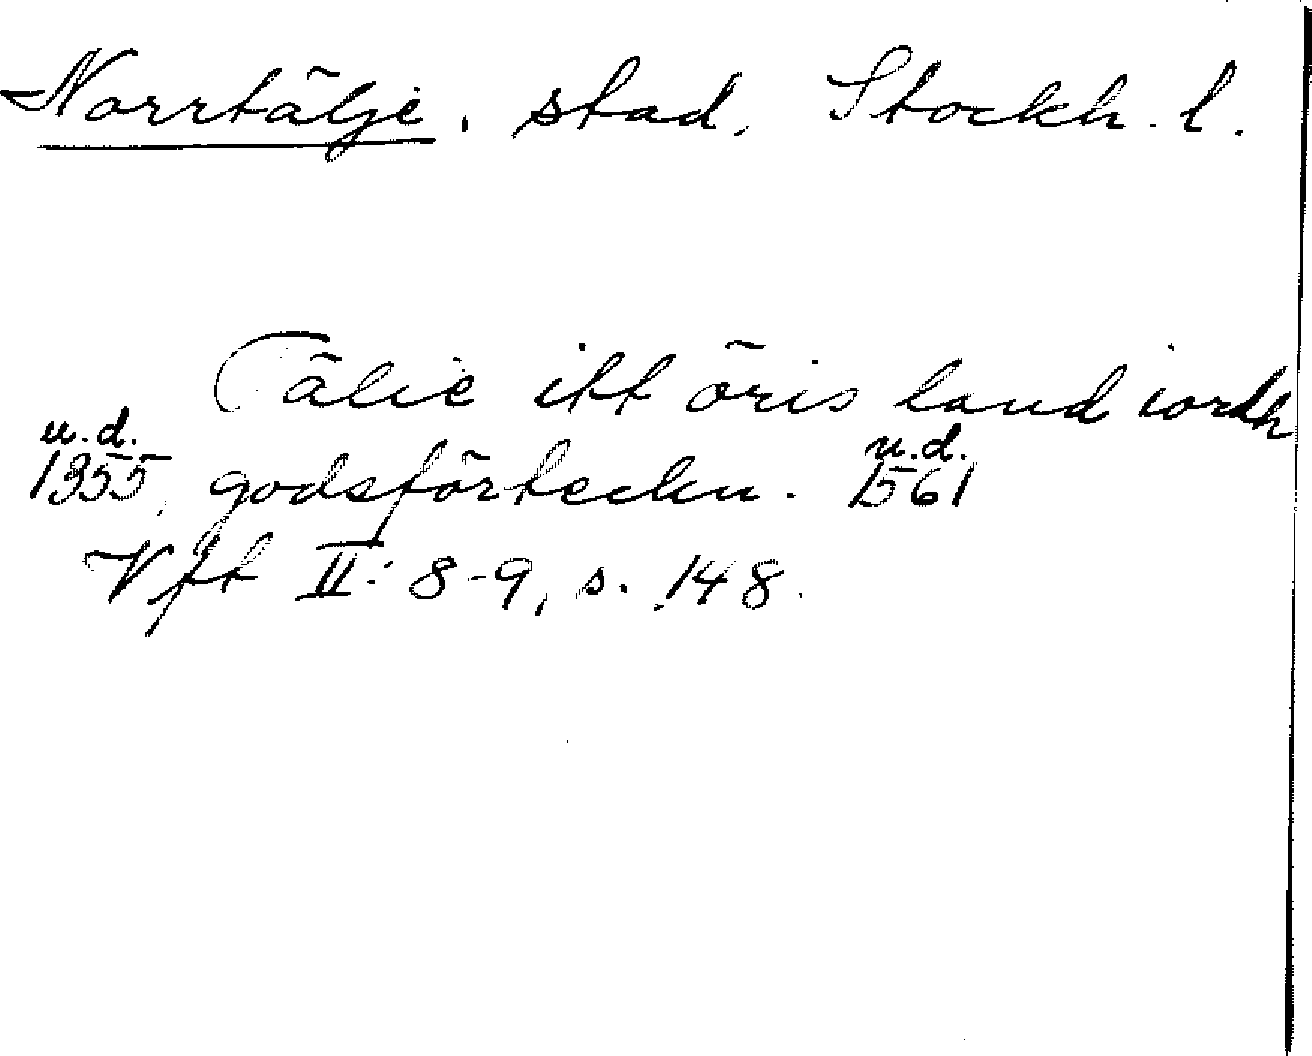 Norrtälje. stad. Stockh. l.
Tälie itt öris land iordh
u.d. u.d.
1355, godsförteckn. 1561
Vft II: 8-9, s. 148.